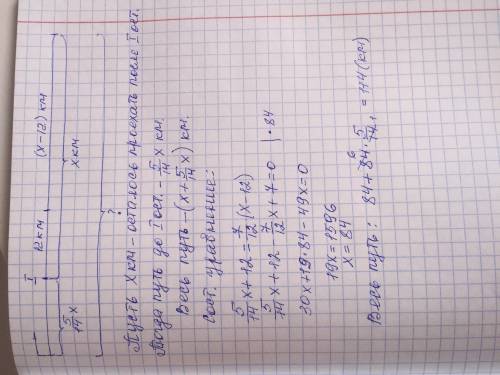 I 12 км (x-12) км
5/14 x x км
?
Пусть x км - осталось проехать после I ост.
Тогда путь до I ост. - 5/14 x км.
Весь путь - (x + 5/14 x) км.
Сост. уравнение:
5/14 x + 12 = 7/12 (x-12)
5/14 x + 12 - 7/12 x + 7 = 0 | · 84
30x + 19 · 84 - 49x = 0
19x = 1596
x = 84
Весь путь: 84 + 84 · 5/14 = 114 (км)